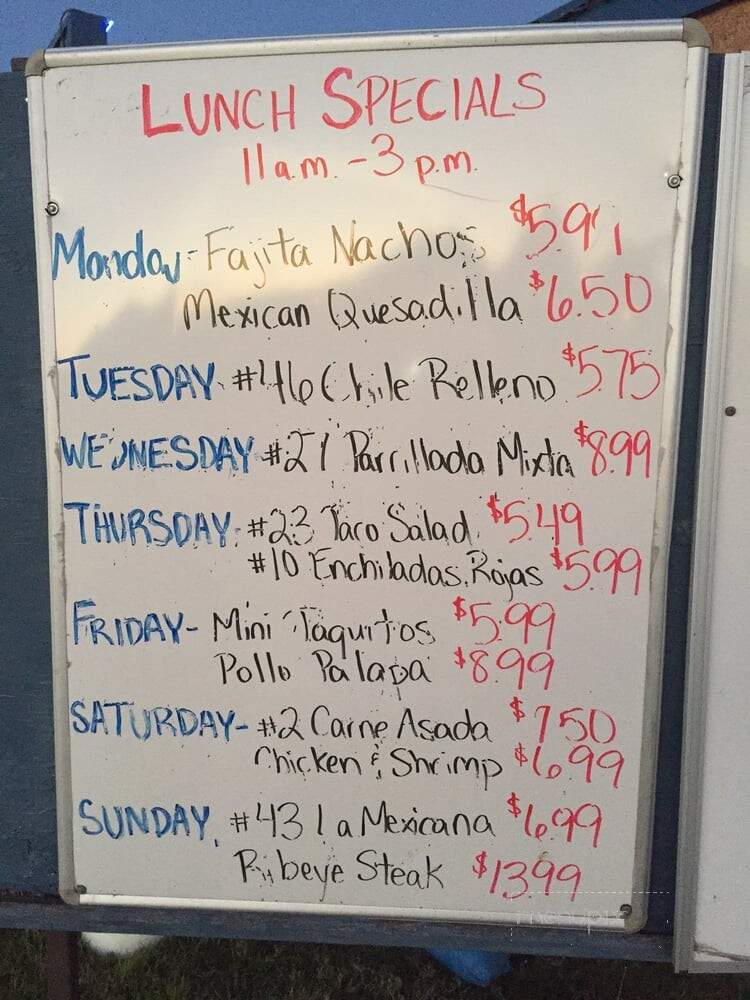 LUNCH SPECIALS
11 a.m. - 3 p.m.
Monday - Fajita Nachos
Mexican Quesadilla $6.50
TUESDAY #46 Chile Relleno $5.75
WEDNESDAY #21 Parrillada Mixta $8.99
THURSDAY - #23 Taco Salad $5.49
#10 Enchiladas Rojas $5.99
FRIDAY - Mini Taquitos $5.99
Pollo Palapa $8.99
SATURDAY - #2 Carne Asada $7.50
Chicken & Shrimp $6.99
SUNDAY #43 La Mexicana $6.99
Ribeye Steak $13.99